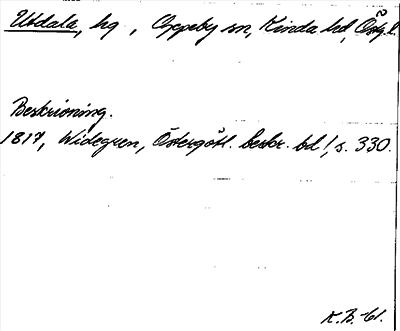 Utdala, hg , Oppeby sn, Kinda hd, Östg. l.
Beskrivning.
1817, Widegren, Östergötl. beskr. bd 1, s. 330.
K.B.-61.